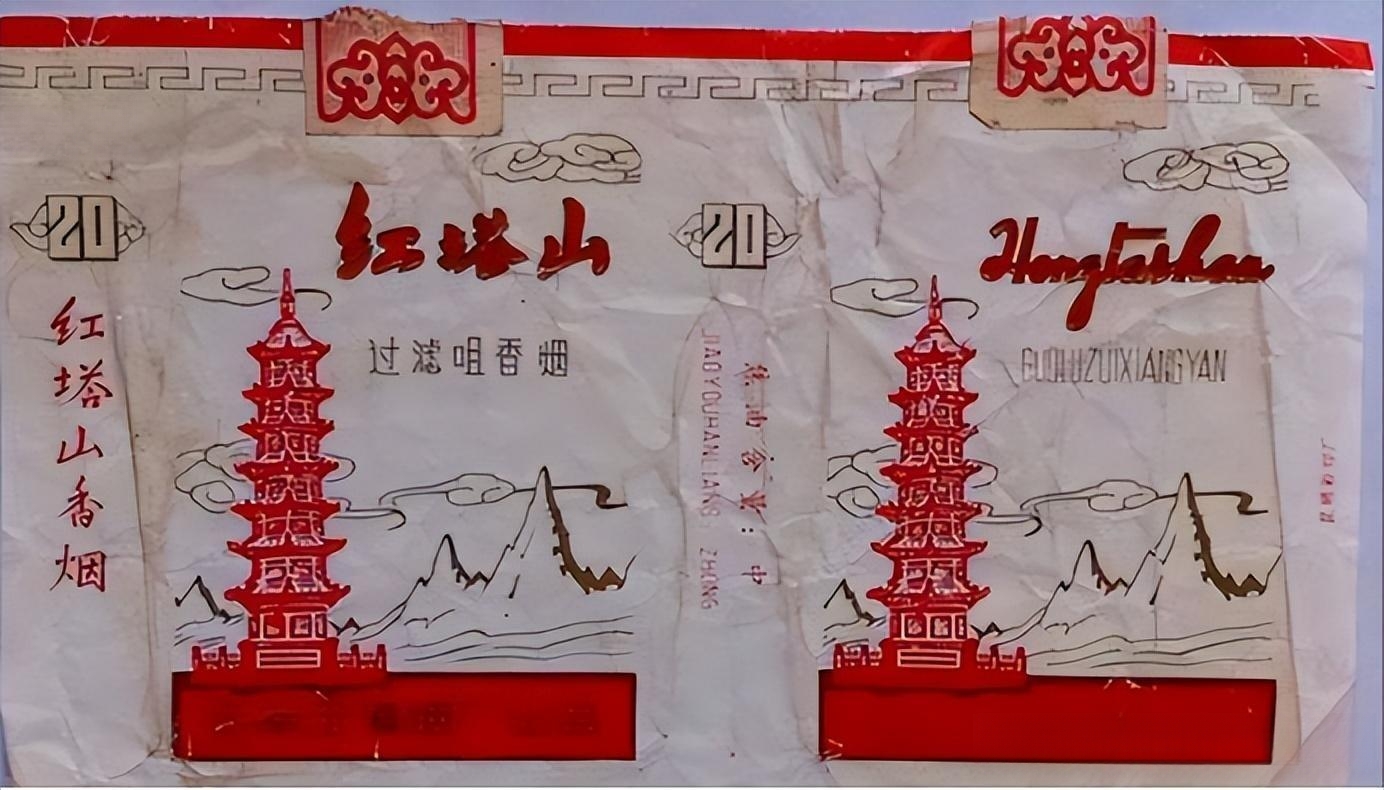 20
红塔山香烟
红塔山
过滤咀香烟
20
焦油含量：中
JIAOYOUHANLIANG: ZHONG
Hongtashan
GUOLUZUIXIANGYAN